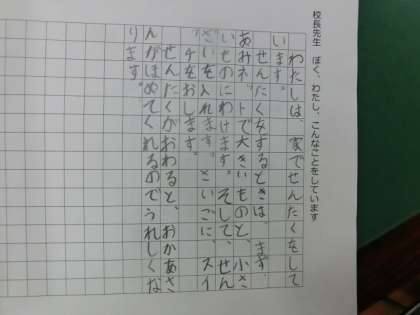 校長先生 ぼく、わたし、こんなことをしています
わたしは、家でせんたくをして
います。
せんたくをするときは、まず、
あみネットで大きいものと、小さ
いものにわけます。そして、せん
ざいを入れます。さいごに、スイ
チをおします。
せんたくがおわると、おかあさ
んがほめてくれるのでうれしくな
ります。